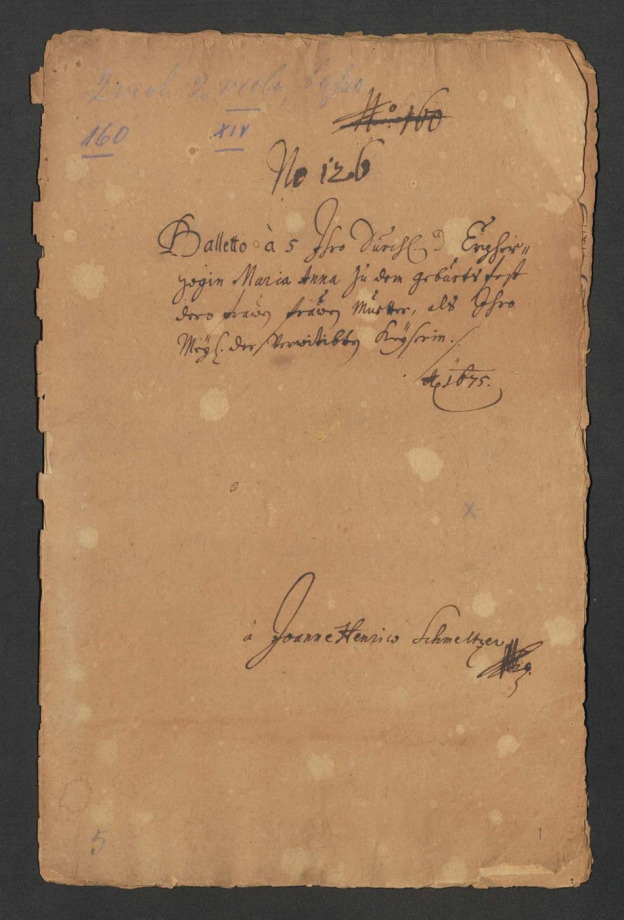 2 viol. 2 viole, basso
160 XIV
No. 160
No 126
Balletto à 5 Ihro Durchl. d Erzher=
zogin Maria Anna zu dem geburts fest
dero frawen Mutter, als Ihro
May. der Verwittibten Keyserin.
A 1675.
x
à Joanne Henrico Schmeltzer
5